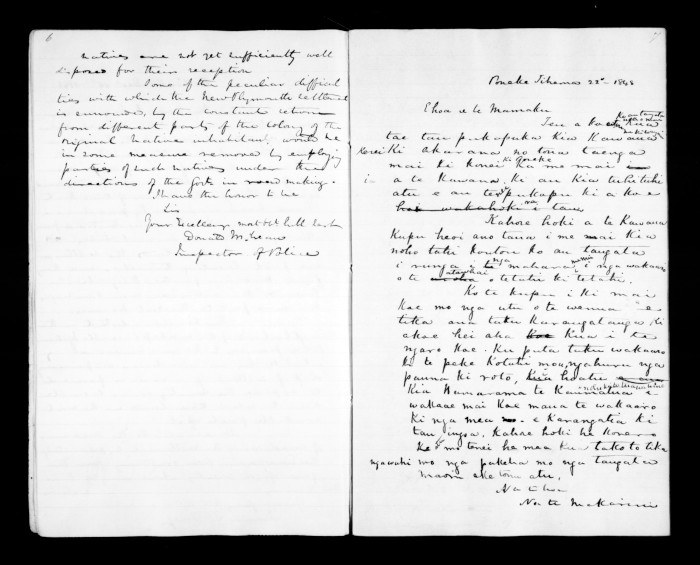 6
natives are not yet sufficiently well
disposed for their reception
Some of the peculiar difficul
ties with which the New Plymouth settlement
is surrounded, by the constant return
from different parts of the colony of the
original native inhabitant, would be
in some measure removed by employing
parties of such natives under the
directions of the Govt in road making.
I have the honor to be
Sir
Your Excellency most obt hble Servt
Donald McLean
Inspector of Police
7
Poneke 22d 1848
Ehoa e te Mamaku
Tena koe kua
tae tau pukapuka kia Kawana
Kerei ki Akarana no tona taenga
mai ki konei ki Poneke ka me mai
ia a te Kawana, ki au kia tuhituhi
atu e au te pukapu ki a koe
Kahore hoki a te Kawana
kupu heoi ano tana i me mai kia
noho tahi koutou ko au taugata
i runga i te mahara i nga wakaaro
o te atawhai o tetahi ki tetahi.
Ko te kupu i ki mai
koe mo nga utu o te wenua e
tika ana taku karangatanga ki
akoe hei aha kua i te
ngaro koe. Ku puta taku wakaaro
ki te peke kotahi mou, ngahuru nga
pauna ki roto, hoatu
kia Hamarama te Kaumatua i
wakaae mai koe maua te wakaaro
ki nga mea e karangatia ki
tau ingoa. Kahore hoki he korero
ke mo tenei he mea kua takoto tika
ngawari mo nga pakeha mo nga taugata
maori ake tonu atu.
Na to hoa
Na te Makarini